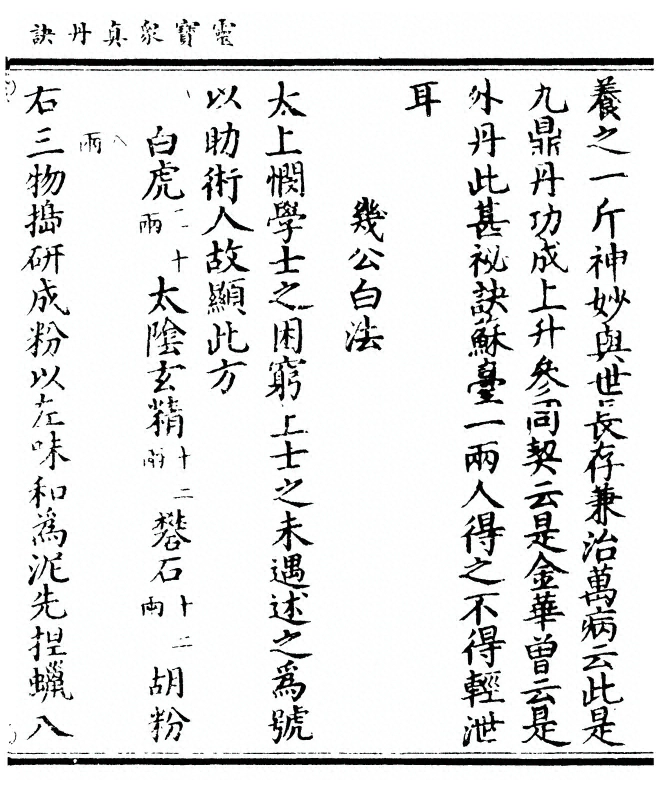 靈寶衆真丹訣
養之一斤神妙與世長存兼治萬病云此是
九鼎丹功成上升參同契云是金華曾云是
外丹此甚祕訣蘇臺一兩人得之不得輕泄
耳
幾公白法
太上憫學士之困窮上士之未遇述之為號
以助術人故顯此方
白虎二十兩太陰玄精十二兩礬石十二兩胡粉
八兩
右三物搗研成粉以左味和為泥先捏蠟八